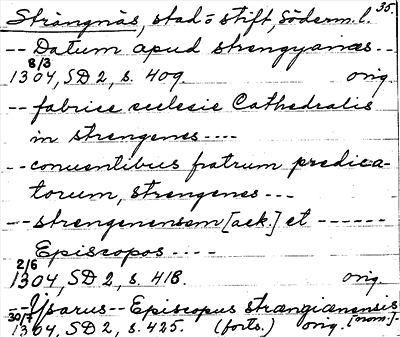 35.
Strängnäs, stad o stift, Söderm. l.
-- Datum apud strengyænæs --
8/3
1304, SD 2, s. 409. orig.
-- fabrice ecclesie Cathedralis
in strengenes ----
-- conuentibus fratrum predica-
torum, strengenes ---
-- strengenensem [ack.] et ------
Episcopos ----
2/6
1304, SD 2, s. 418. orig.
-- Ysarus -- Episcopus strængianensis [nom.] -
30/7
1304, SD 2, s. 425. (forts.) orig.